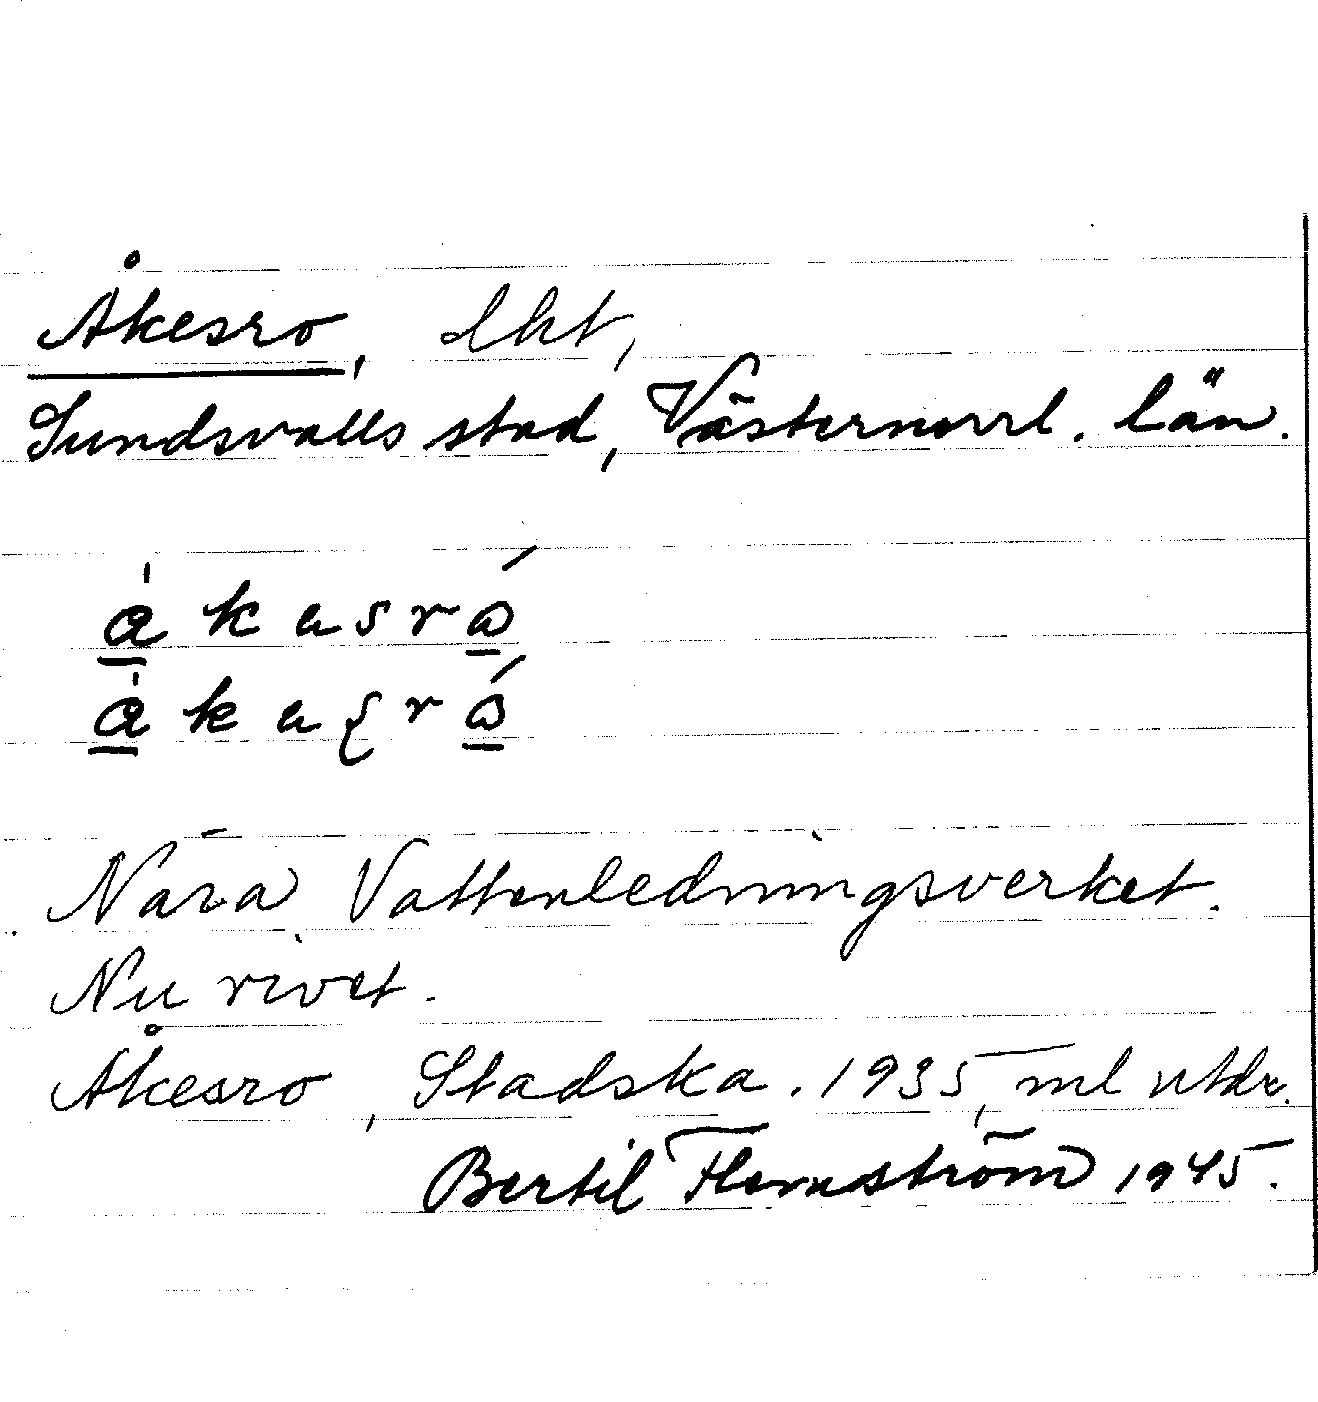 Åkesro, lht,
Sundsvalls stad, Västernorrl. län.
Nära Vattenledningsverket.
Nu rivet.
Åkesro, Stadska. 1935, ml utdr.
Bertil Flemström 1945.